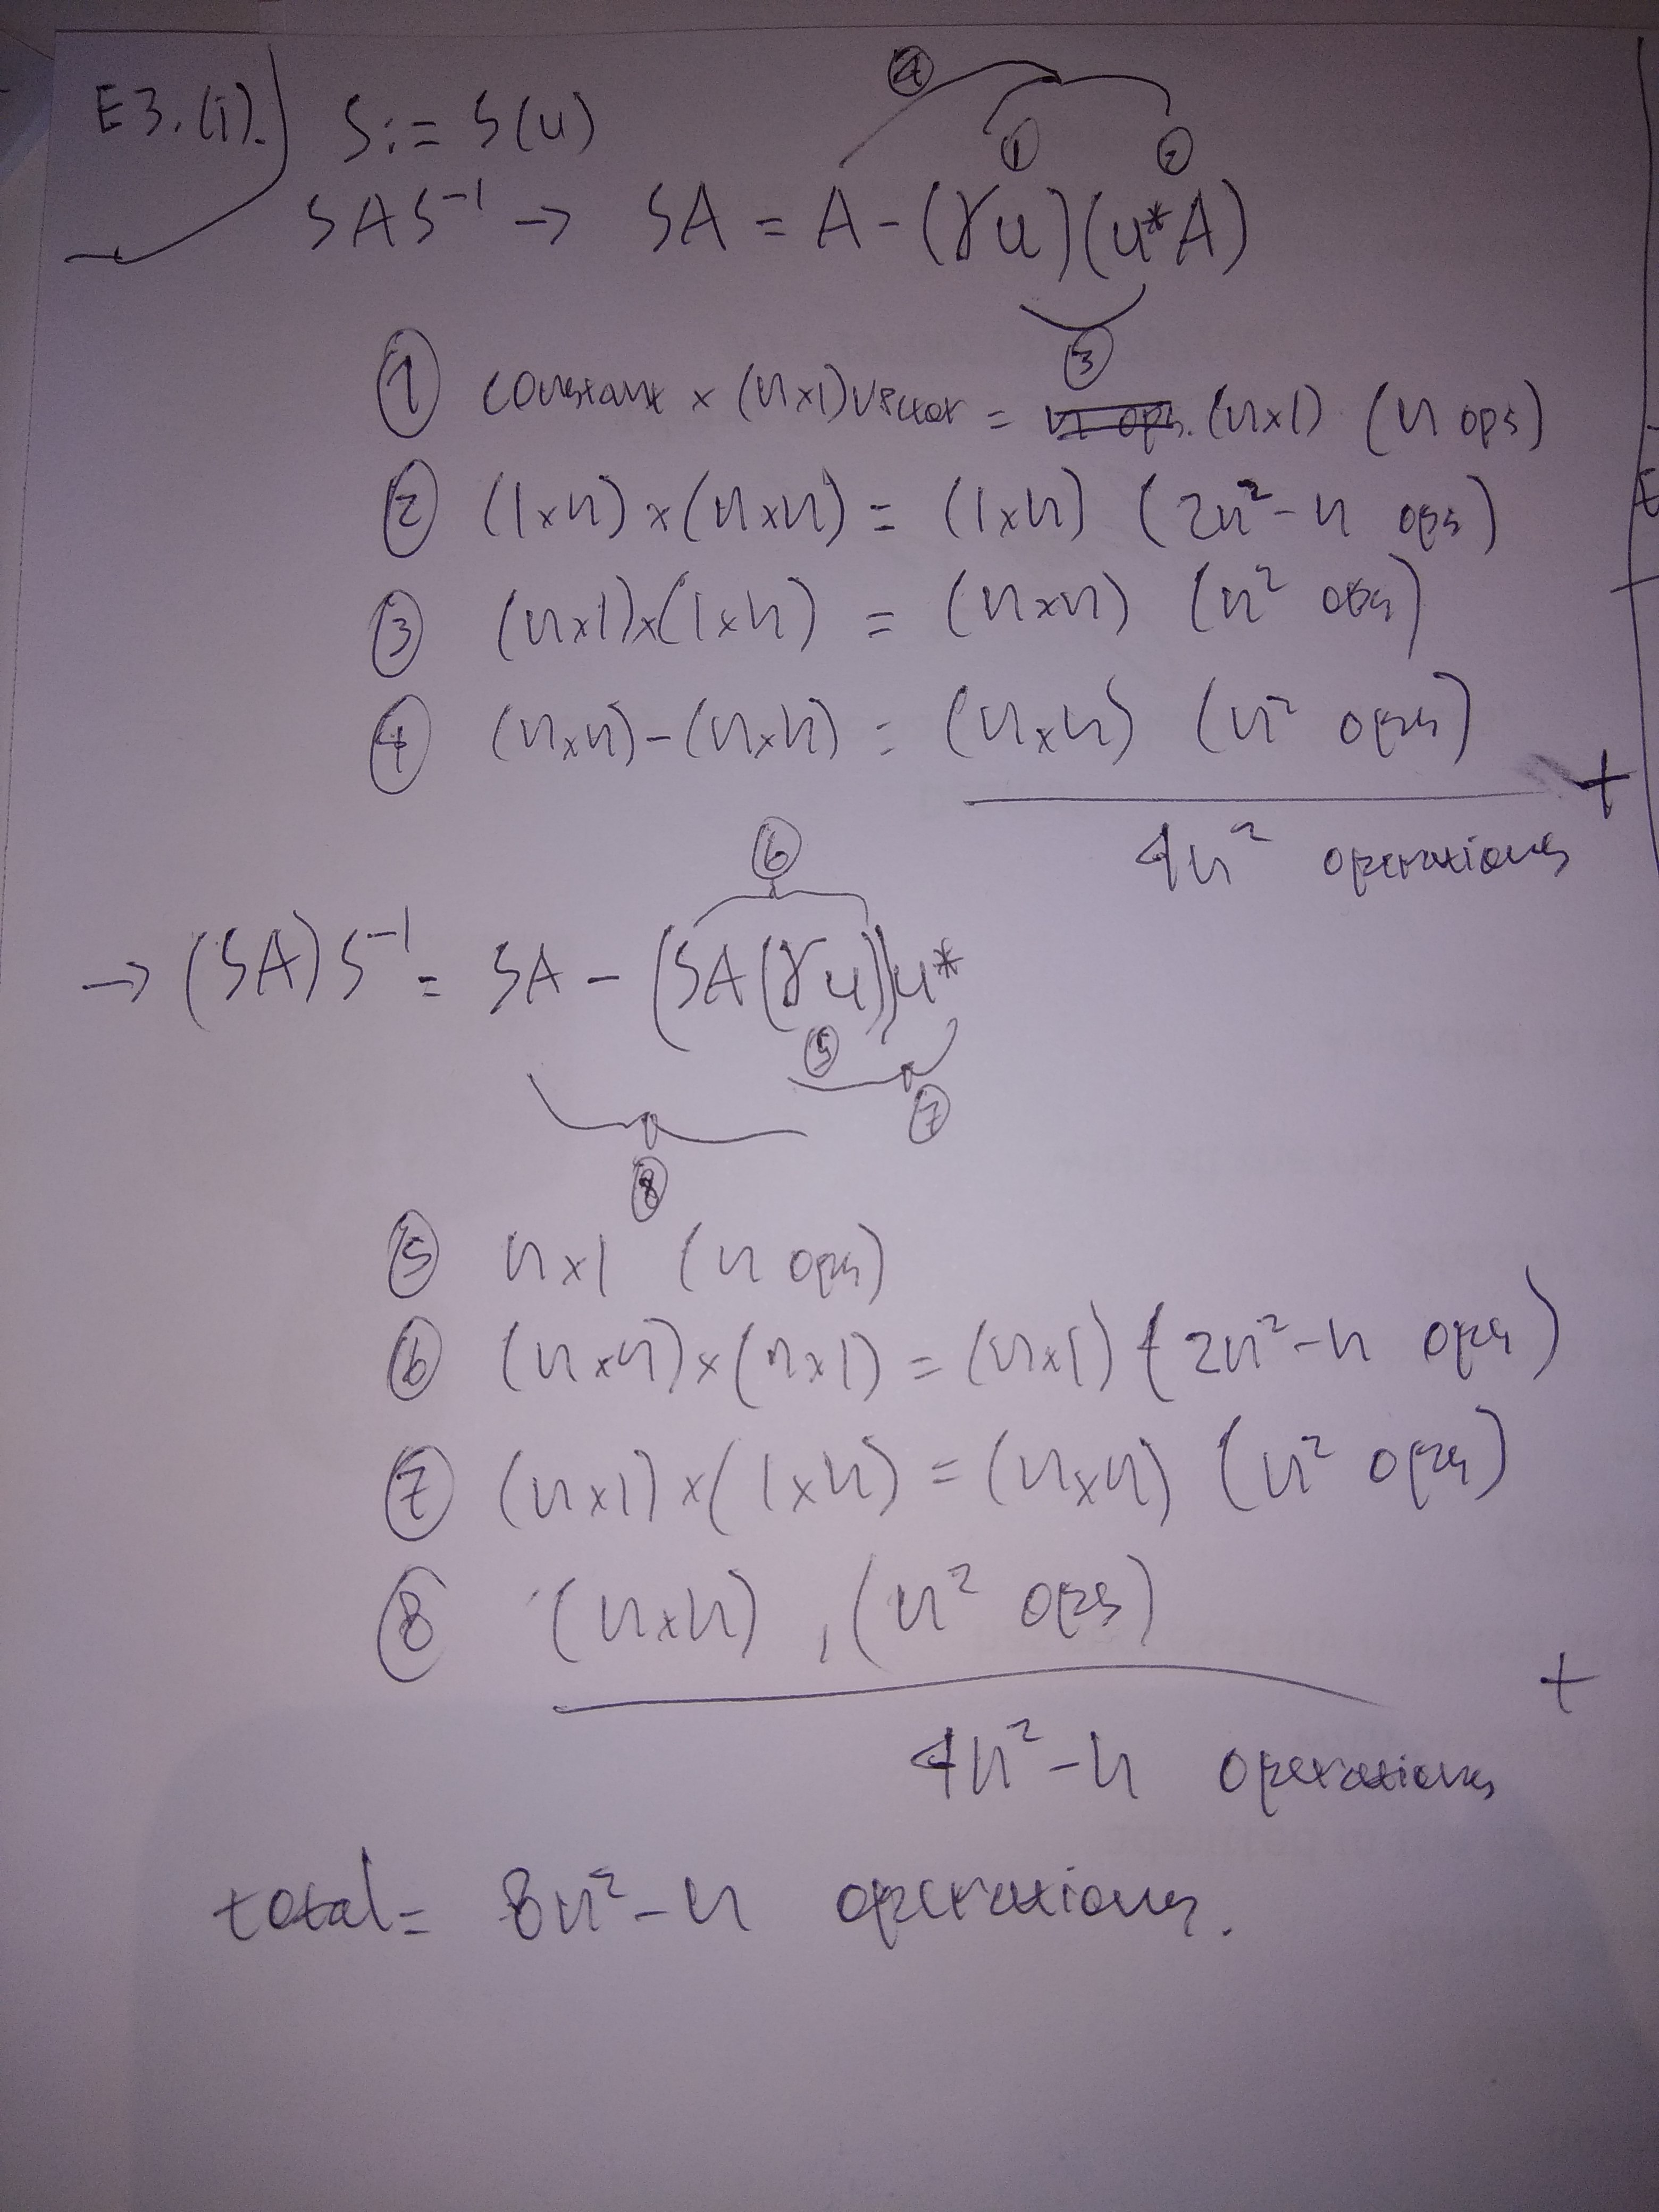 E3.(i). S := S(u)
④
① ②
SAS⁻¹ → SA = A - (γu)(u*A)
③
① constant × (n×1) vector = n ops. (n×1) (n ops)
② (1×n) × (n×n) = (1×n) (2n²-n ops)
③ (n×1)×(1×n) = (n×n) (n² ops)
④ (n×n) - (n×n) = (n×n) (n² ops)
+
4n² operations
⑥
→ (SA)S⁻¹ = SA - (SA(γu))u*
⑤
⑦
⑧
⑤ n×1 (n ops)
⑥ (n×n) × (n×1) = (n×1) (2n²-n ops)
⑦ (n×1) × (1×n) = (n×n) (n² ops)
⑧ (n×n) , (n² ops)
+
4n²-n operations
total = 8n²-n operations.